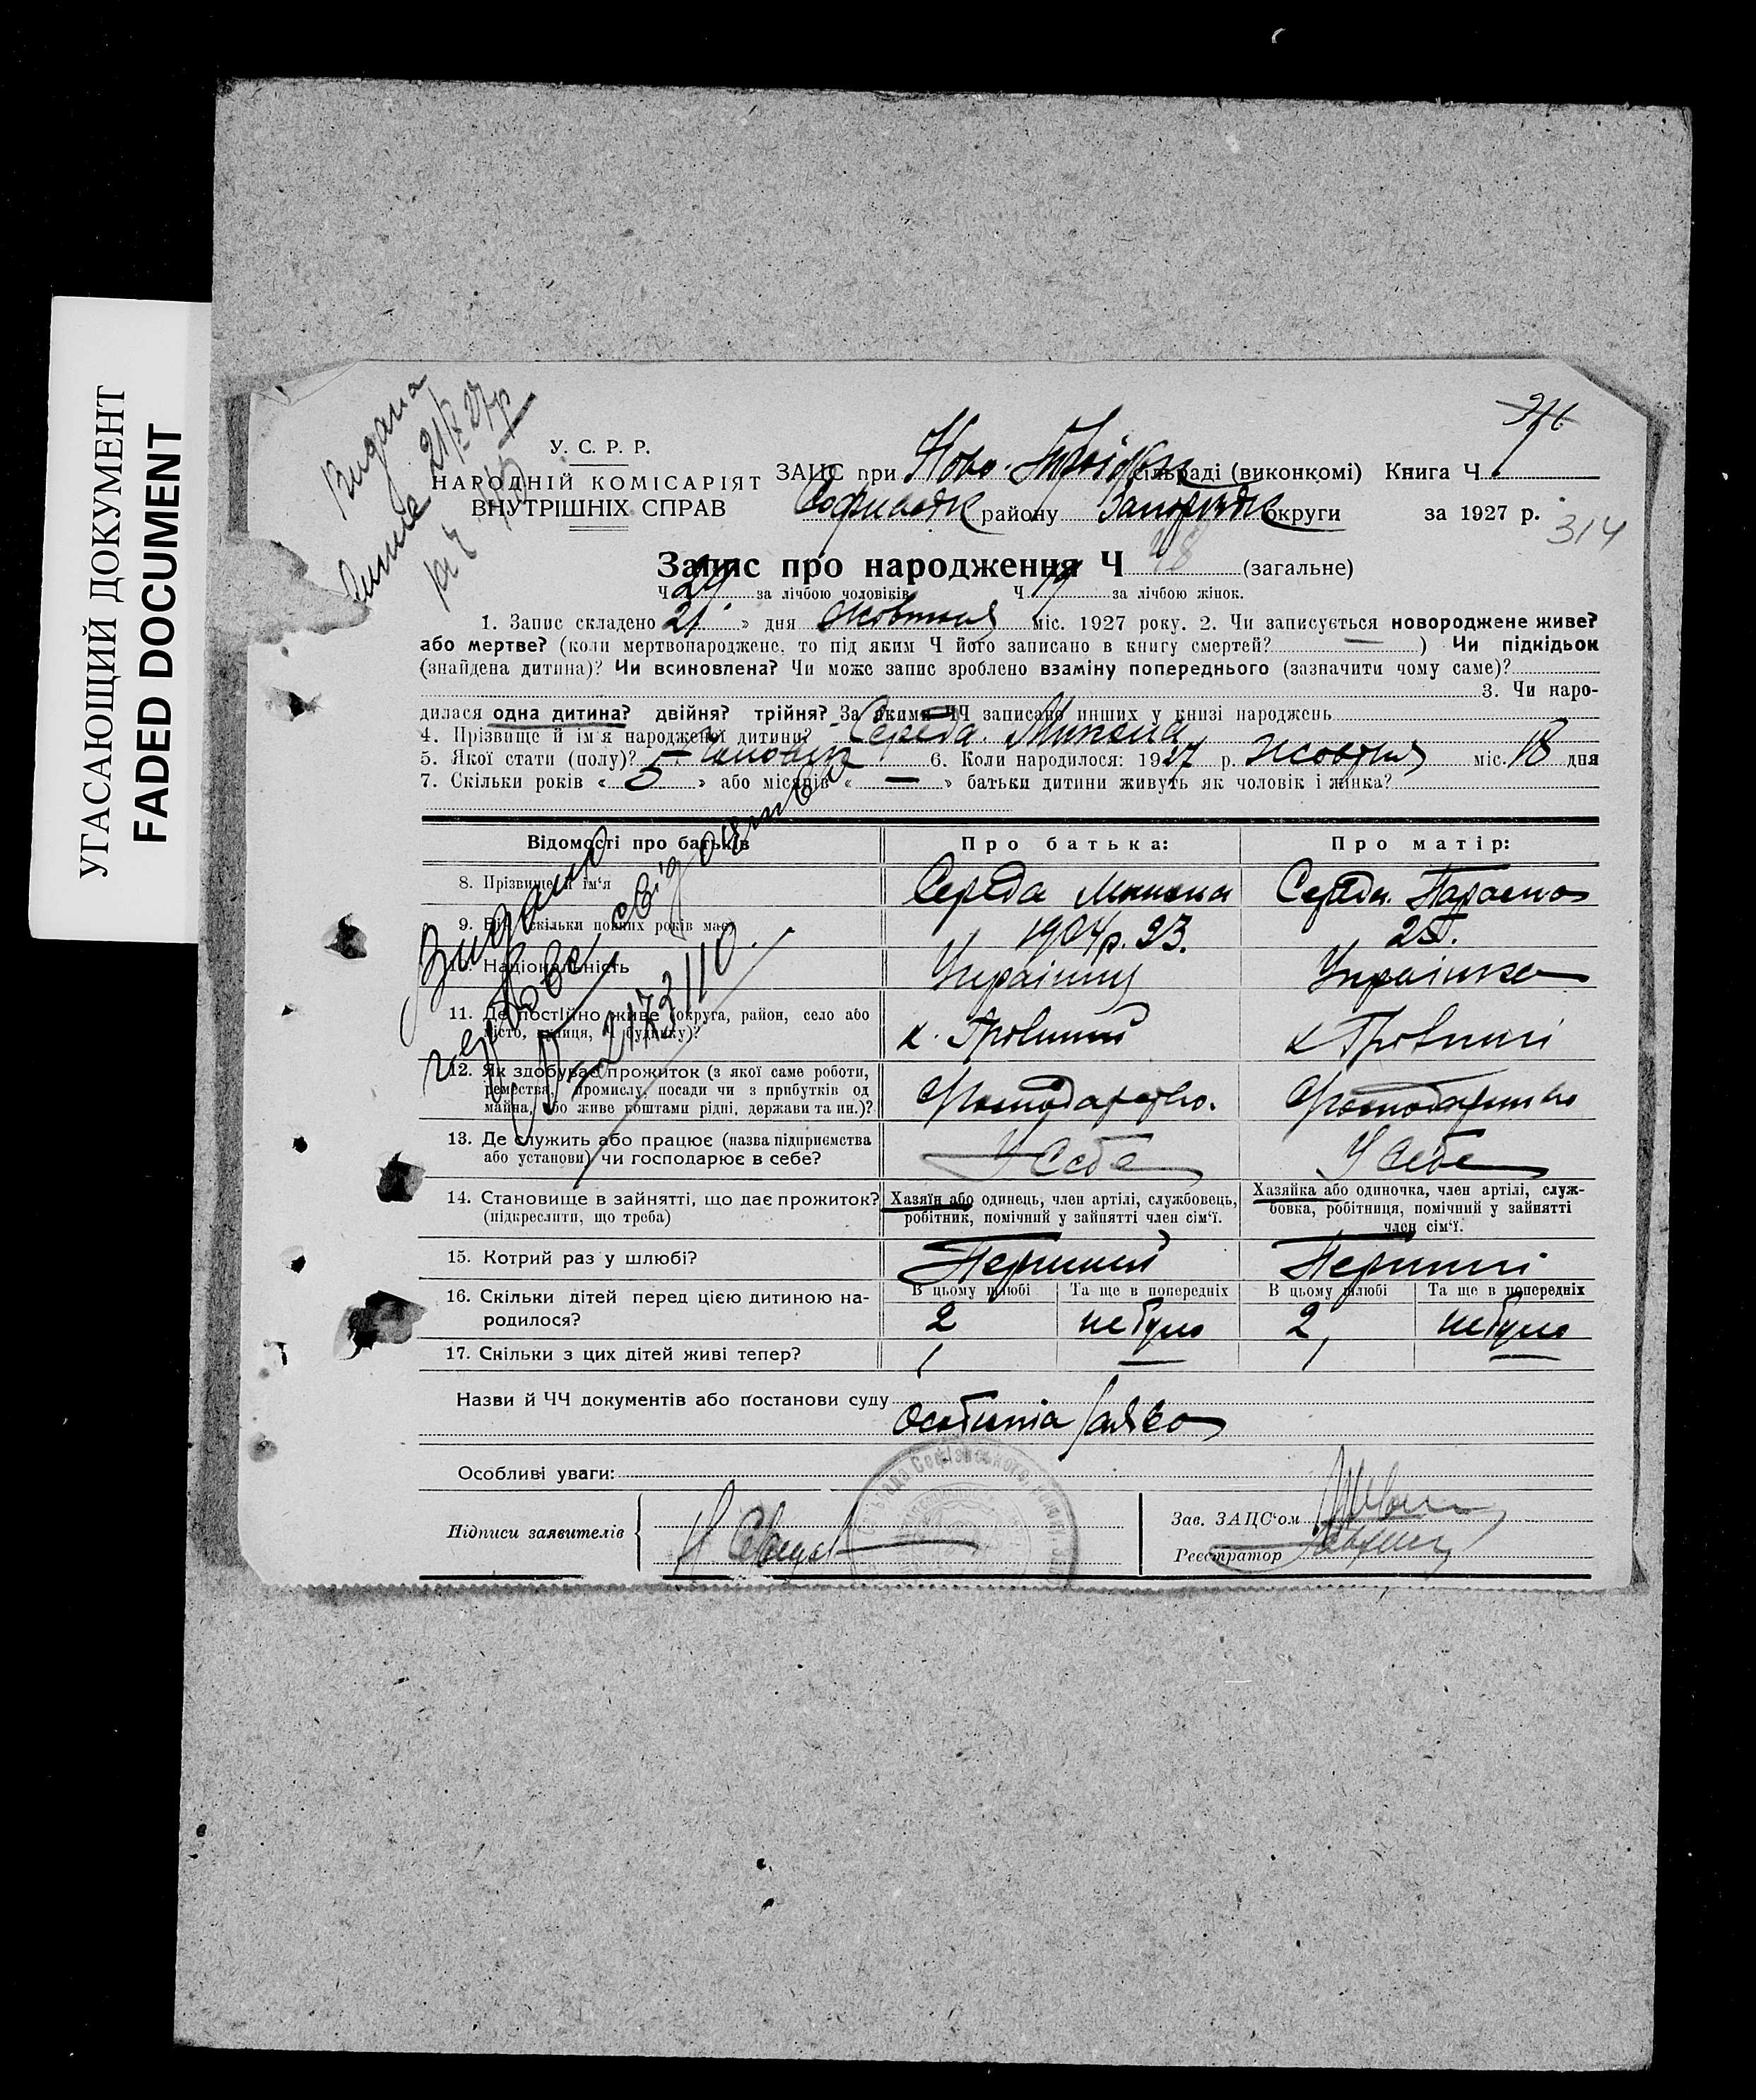 УГАСАЮЩИЙ ДОКУМЕНТ
FADED DOCUMENT
Видана
21/X 27 р
У. С. Р. Р.
НАРОДНІЙ КОМІСАРІЯТ
ВНУТРІШНІХ СПРАВ
ЗАЦС при Ново- сільраді (виконкомі) Книга Ч
району округи за 1927 р.
314
Запис про народження Ч 48 (загальне)
Ч 29 за лічбою чоловіків Ч 19 за лічбою жінок.
1. Запис складено 21 » дня жовтня міс. 1927 року. 2. Чи записується новороджене живе?
або мертве? (коли мертвонароджене, то під яким Ч його записано в книгу смертей? — ) Чи підкідьок
(знайдена дитина)? Чи всиновлена? Чи може запис зроблено взаміну попереднього (зазначити чому саме)?
3. Чи наро-
дилася одна дитина? двійня? трійня? За якими ЧЧ записано инших у книзі народжень
4. Прізвище й ім'я народженої дитини? Середа Микола
5. Якої стати (полу)? Чоловік 6. Коли народилося: 1927 р. жовтня міс. 18 дня
7. Скільки років « 5 » або місяців « — » батьки дитини живуть як чоловік і жінка?
Відомості про батьків Про батька: Про матір:
8. Прізвище й ім'я Середа Микола Середа Параска
9. Вік скільки повних років має? 1904 р. 23.
10. Національність Українец Українка
11. Де постійно живе (округа, район, село або
місто, вулиця, Ч будинку)?
12. Як здобуває прожиток (з якої саме роботи,
ремества, промислу, посади чи з прибутків од
майна, або живе коштами рідні, держави та ин.)?
13. Де служить або працює (назва підприємства
або установи) чи господарює в себе? У себе У себе
14. Становище в зайнятті, що дає прожиток?
(підкреслити, що треба)
Хазяїн або одинець, член артілі, службовець,
робітник, помічний у зайнятті член сім'ї.
Хазяйка або одиночка, член артілі, служ-
бовка, робітниця, помічний у зайнятті
член сім'ї.
15. Котрий раз у шлюбі? Перший Перший
16. Скільки дітей перед цією дитиною на-
родилося?
В цьому шлюбі Та ще в попередніх В цьому шлюбі Та ще в попередніх
2 не було 2 не було
17. Скільки з цих дітей живі тепер? 1 — 1 —
Видано
свідоцтво
2173/10
Назви й ЧЧ документів або постанови суду Особиста заява
Особливі уваги:
Підписи заявителів Середа
Зав. ЗАЦС'ом
Реєстратор